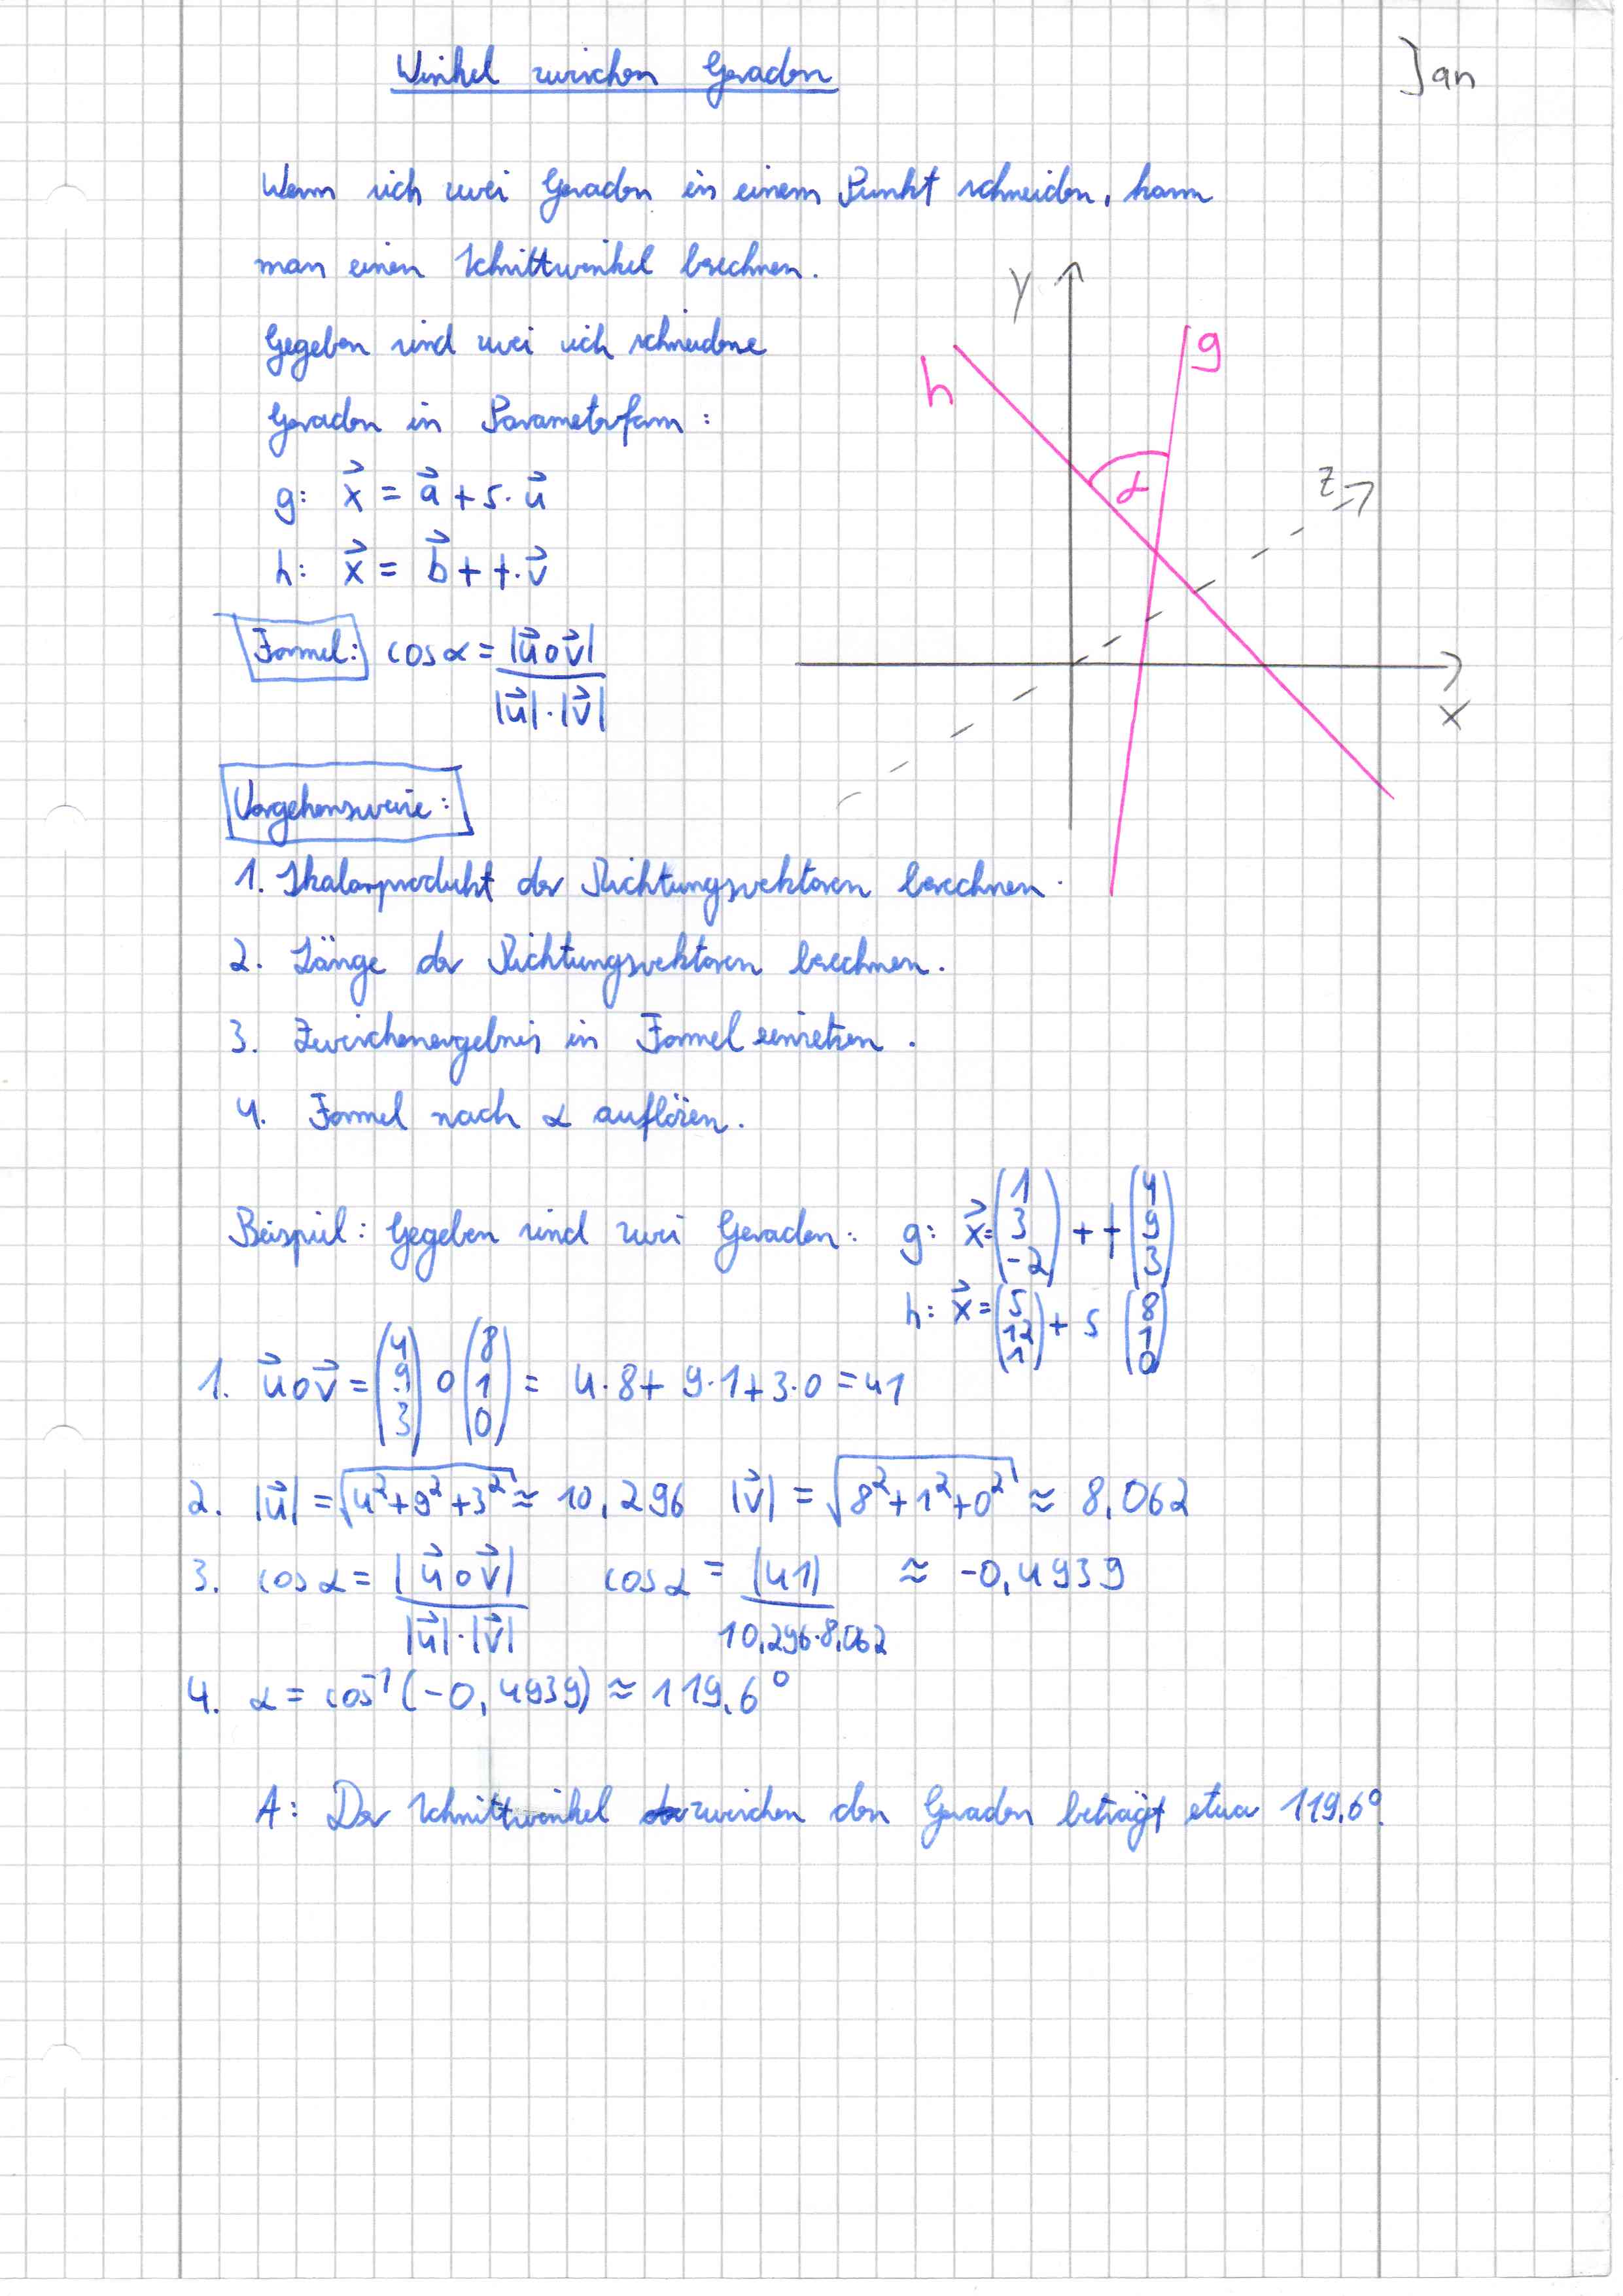 Winkel zwischen Geraden
Jan
Wenn sich zwei Geraden in einem Punkt schneiden, kann
man einen Schnittwinkel berechnen.
Gegeben sind zwei sich schneidene
Geraden in Parameterform:
g: x⃗ = a⃗ + s · u⃗
h: x⃗ = b⃗ + t · v⃗
Formel: cos α = |u⃗ ∘ v⃗| / |u⃗| · |v⃗|
y
h
g
α
z
x
Vorgehensweise:
1. Skalarprodukt der Richtungsvektoren berechnen.
2. Länge der Richtungsvektoren berechnen.
3. Zwischenergebnis in Formel einsetzen.
4. Formel nach α auflösen.
Beispiel: Gegeben sind zwei Geraden: g: x⃗ = (1 3 -2) + t (4 9 3)
h: x⃗ = (5 12 1) + s (8 1 0)
1. u⃗ ∘ v⃗ = (4 9 3) ∘ (8 1 0) = 4·8 + 9·1 + 3·0 = 41
2. |u⃗| = √(4² + 9² + 3²) ≈ 10,296 |v⃗| = √(8² + 1² + 0²) ≈ 8,062
3. cos α = |u⃗ ∘ v⃗| / |u⃗| · |v⃗| cos α = |41| / 10,296 · 8,062 ≈ -0,4939
4. α = cos⁻¹ (-0,4939) ≈ 119,6°
A: Der Schnittwinkel zwischen den Geraden beträgt etwa 119,6°.